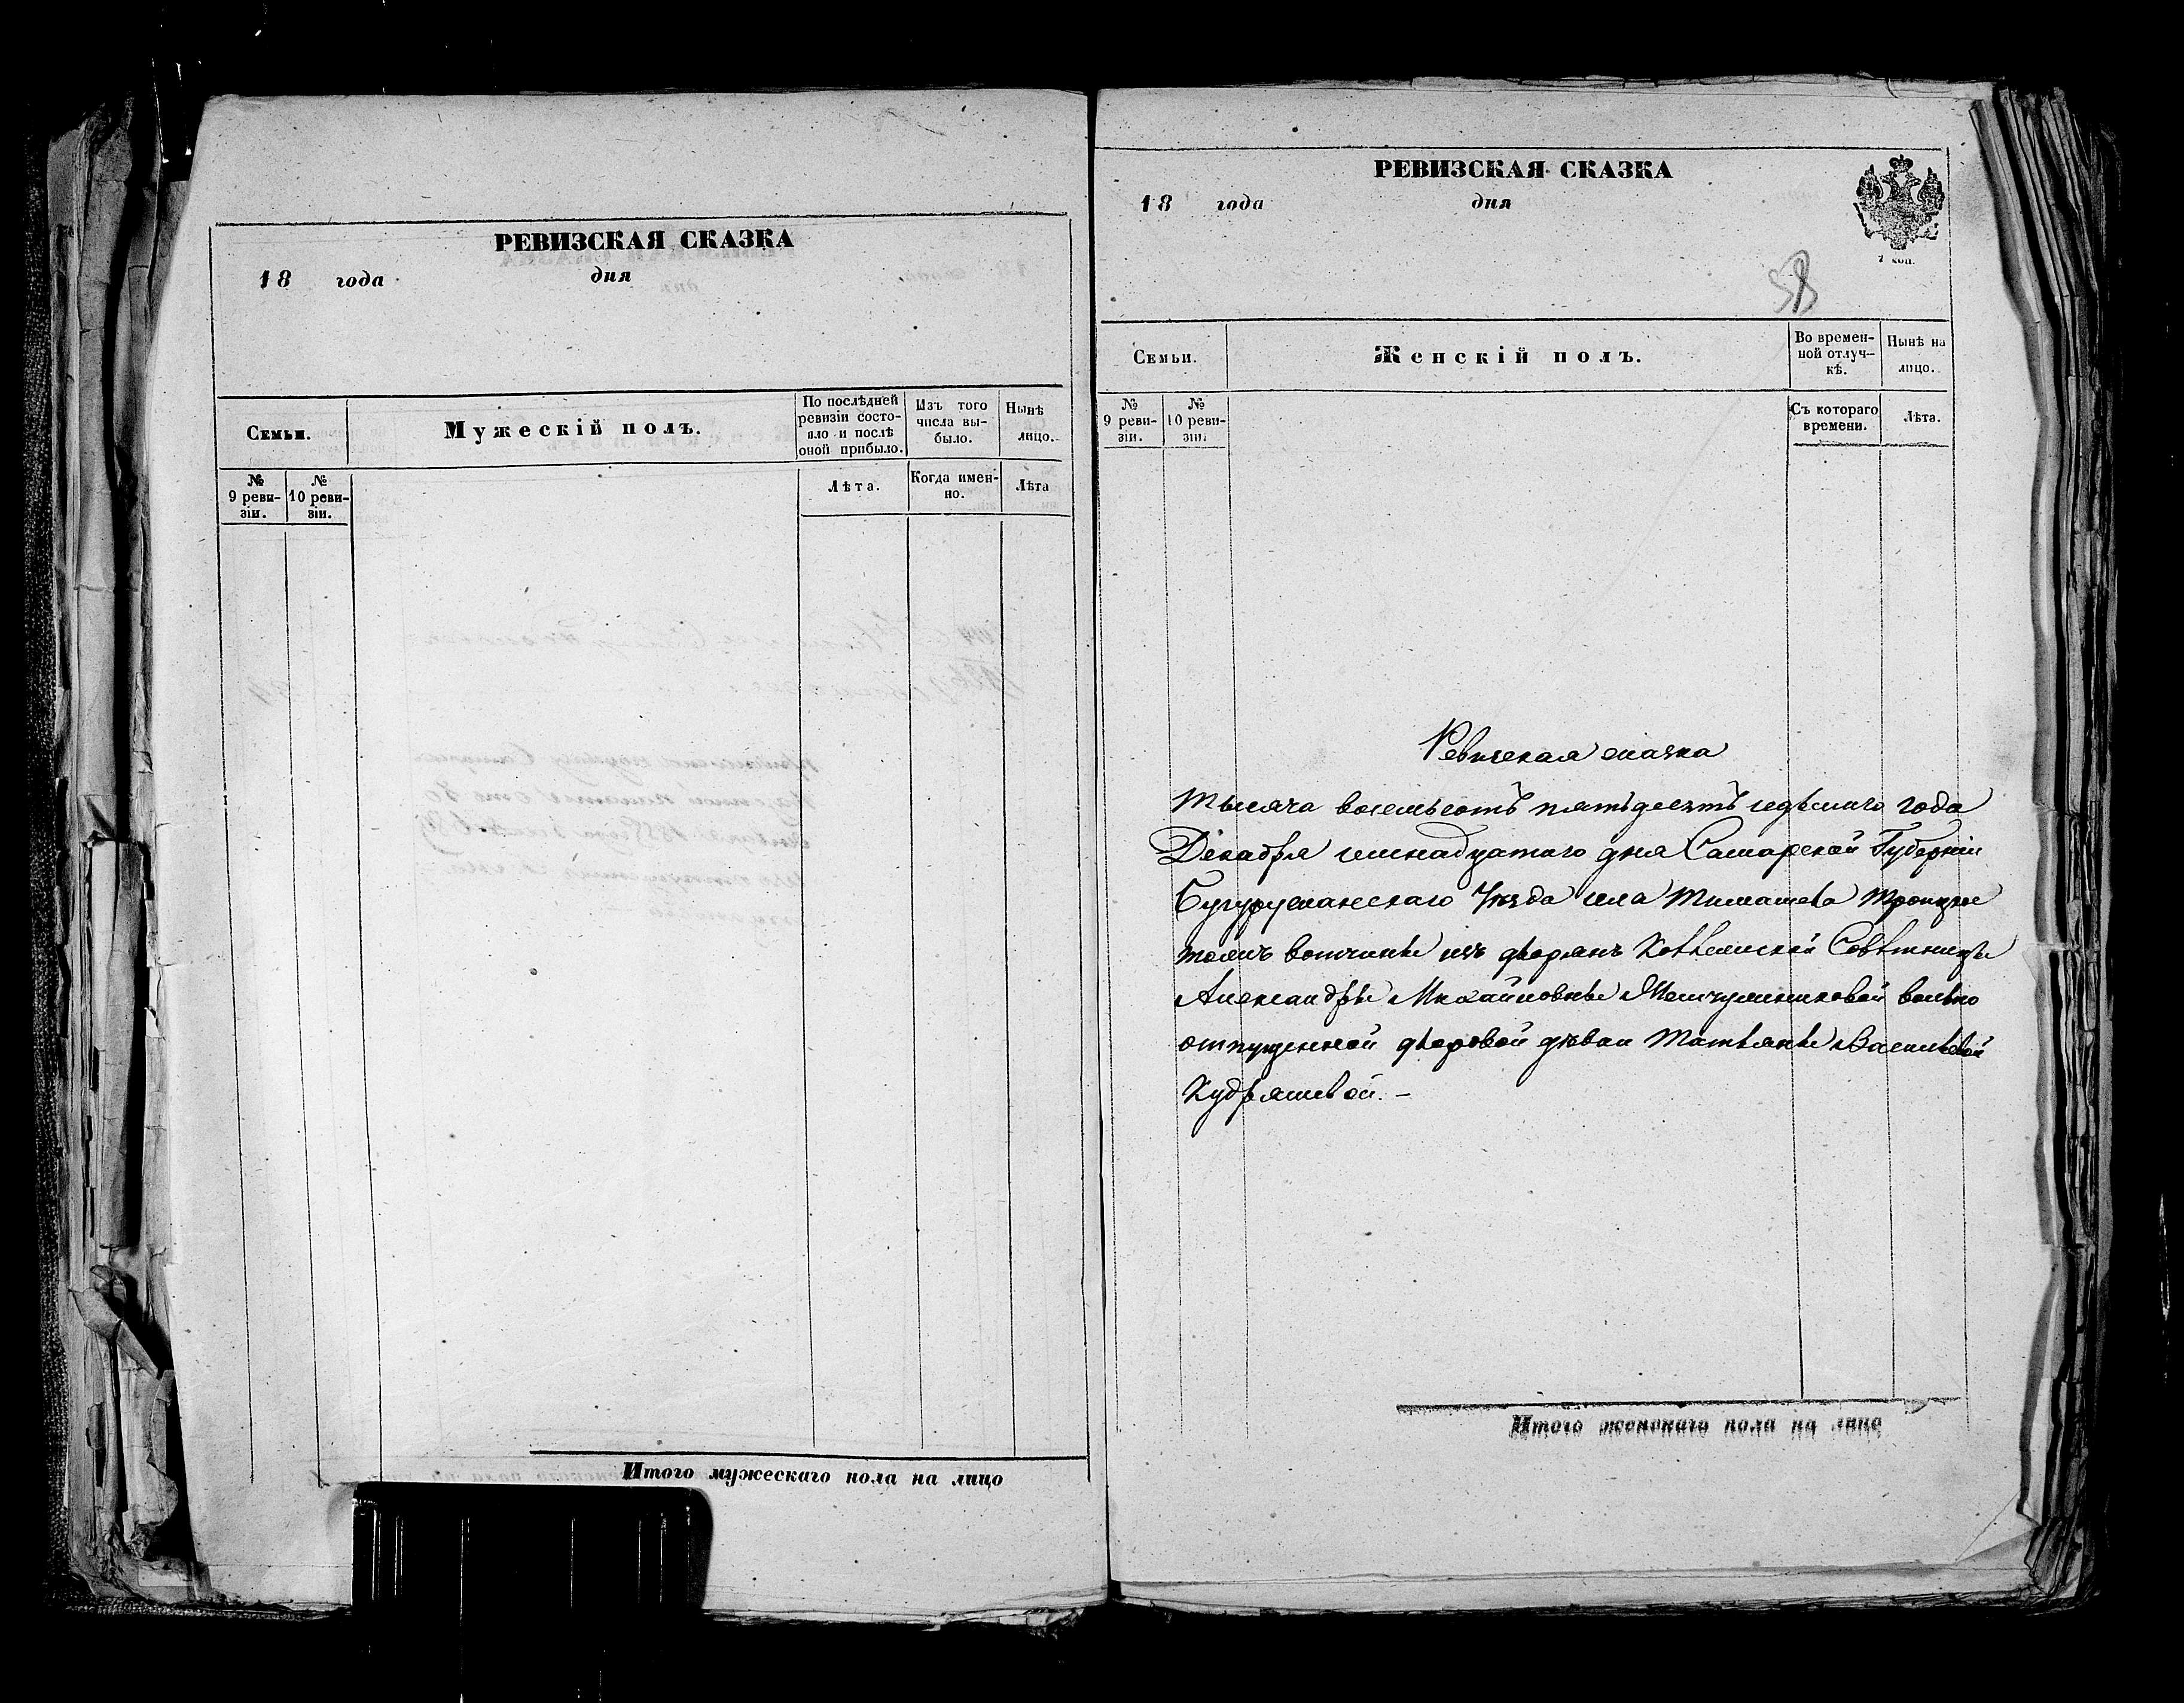 РЕВИЗСКАЯ СКАЗКА
18 года дня
Семьи.
Мужескій полъ.
По послѣдней
ревизіи состо-
яло и послѣ
оной прибыло.
Изъ того
числа вы-
было.
Нынѣ
лицо.
№
9 реви-
зіи.
№
10 реви-
зіи.
Лѣта.
Когда имен-
но.
Лѣта
Итого мужескаго пола на лицо
РЕВИЗСКАЯ СКАЗКА
18 года дня
коп.
58
Семьи.
Женскій полъ.
Во времен-
ной отлуч-
кѣ.
Нынѣ на
лицо.
№
9 реви-
зіи.
№
10 реви-
зіи.
Съ котораго
времени.
Лѣта.
Ревизская сказка
Тысяча восемьсотъ пятьдесятъ седьмаго года
Декабря семнадцатаго дня Самарской Губерніи
Бугурусланскаго Уѣзда села Тимашева Троицкое
тожъ вотчинѣ изъ дворянъ Совѣтницы
Александрѣ Михайловнѣ вольно
отпущенной дворовой дѣвки Татьянѣ Васильевой
Кудряшевой. —
Итого женскаго пола на лицо